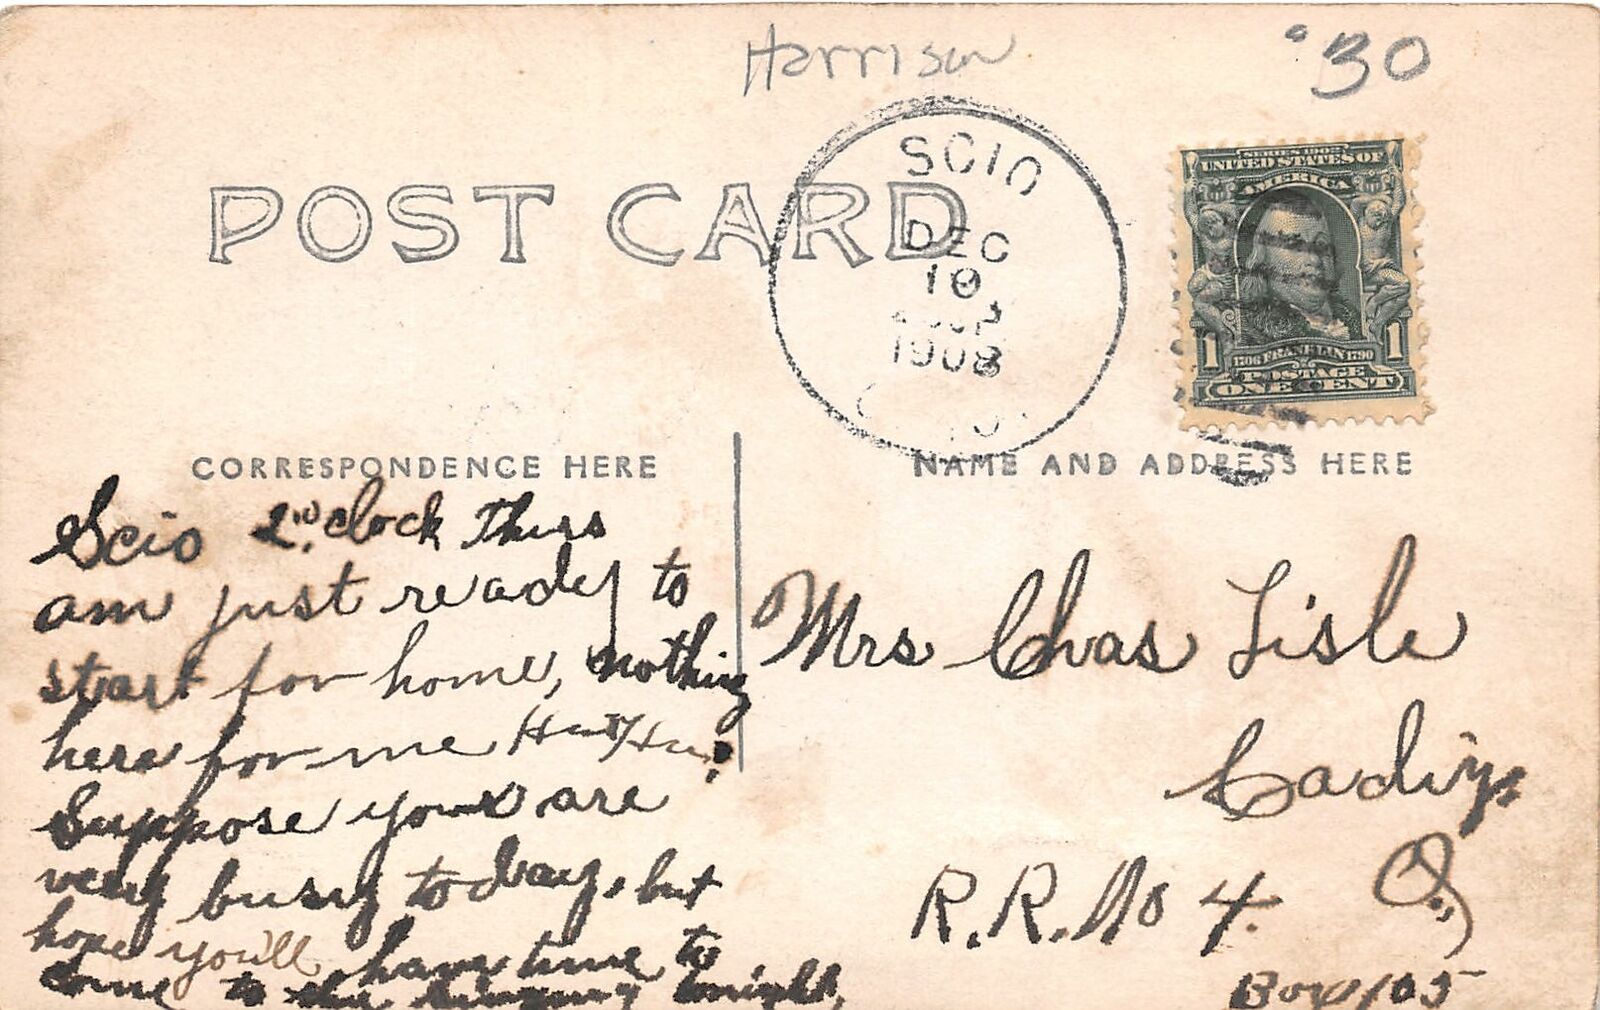 Harrison
30
POST CARD
SCIO
DEC
10
1908
SERIES 1902
UNITED STATES OF
AMERICA
1 1
1706 FRANKLIN 1790
POSTAGE
ONE CENT
CORRESPONDENCE HERE
NAME AND ADDRESS HERE
Scio 2 o'clock Thurs
am just ready to
start for home, nothing
here for me
Suppose you are
very busy today, but
hope you'll have time to
come to the tonight,
Mrs Chas Lisle
Cadiz,
R.R. No 4. O.,
Box 105